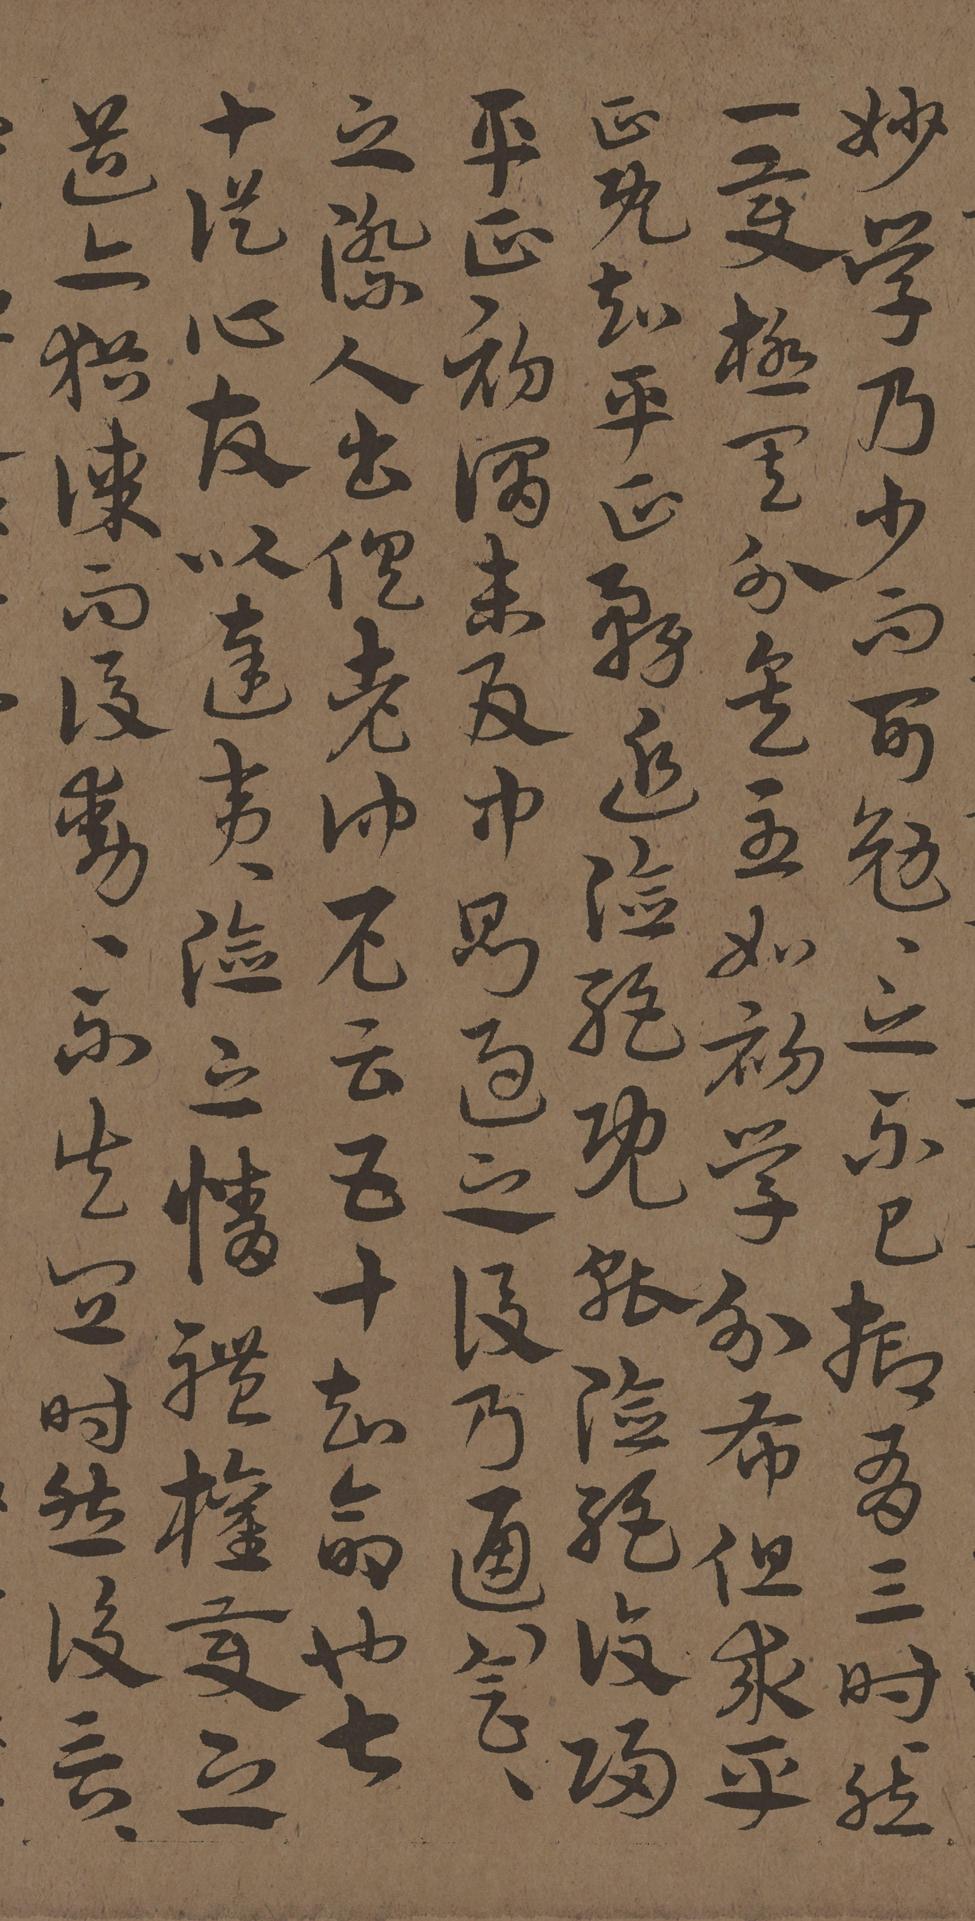 妙學乃少而可勉〻之不已抑有三時〻然
一變極其分矣至如初學分布但求平
正既知平正務追險絕既能險絕復歸
平正初謂未及中則過之後乃通會〻
之際人書俱老仲尼云五十知命也七
十從心故以達夷險之情體權變之
道亦猶謀而後動〻不失宜時然後言〻